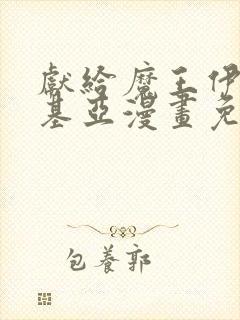 獻給魔王伊
基亞漫畫免
包養郭